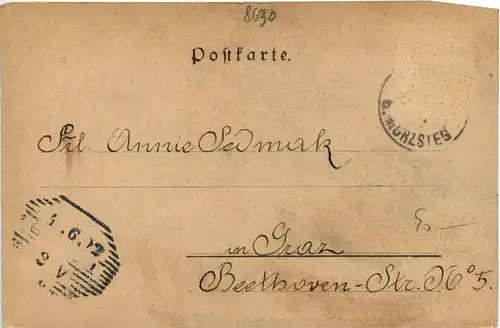 8630
Postkarte.
b. MÜRZSTEG
Frl. Annie Sedmak
1.6.02
2 V
in Graz
Beethoven-Str. No 5.